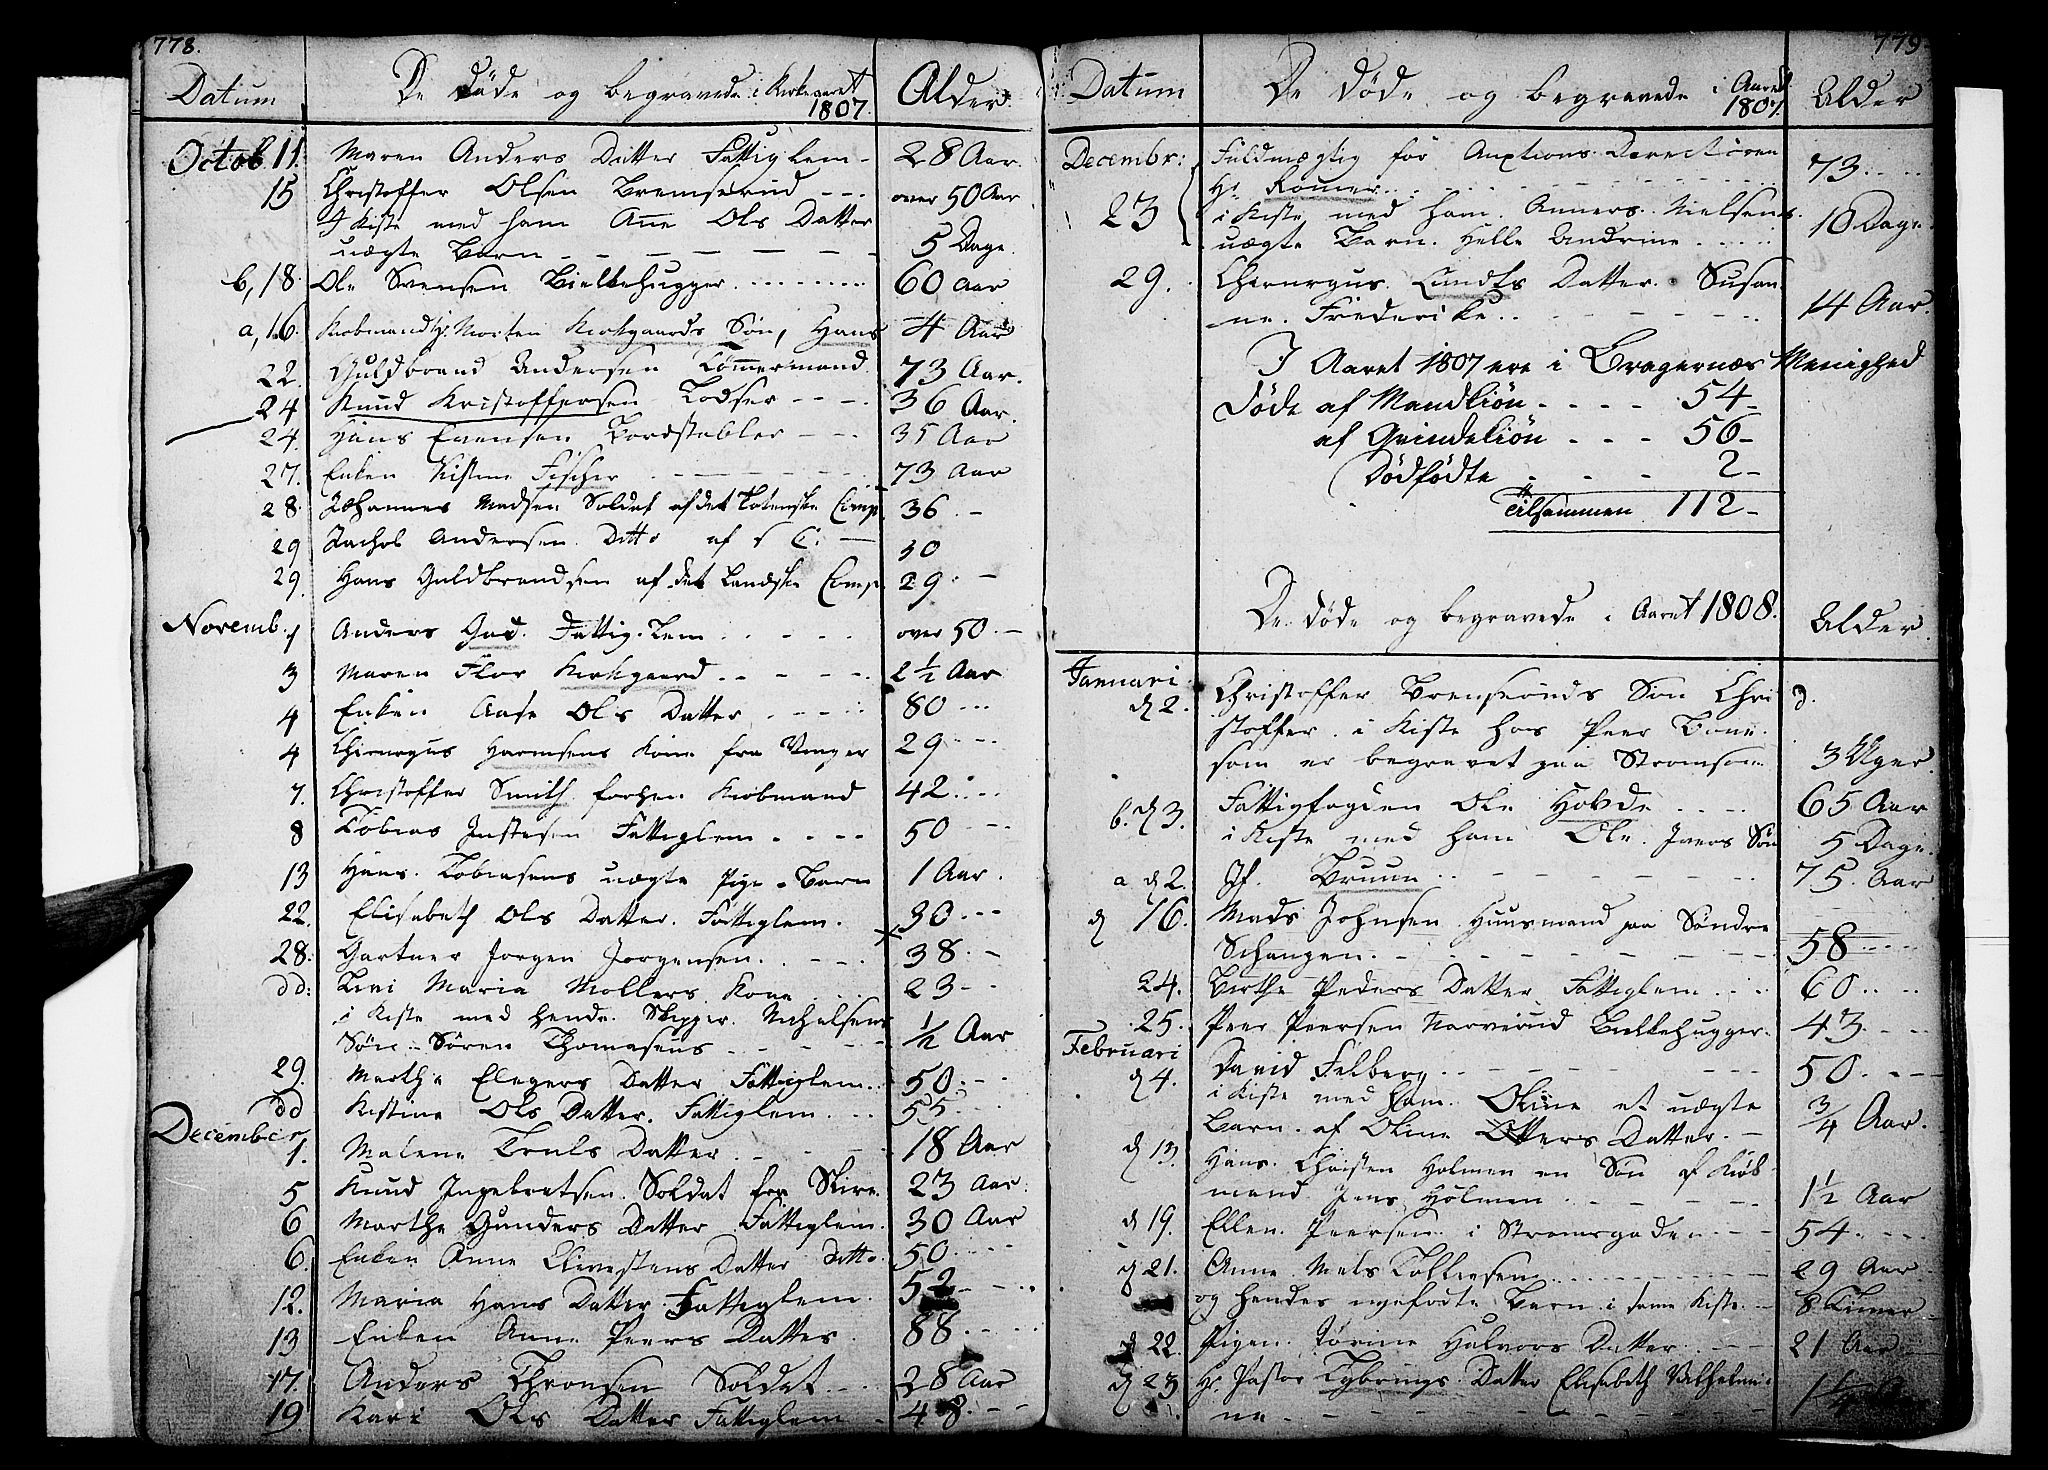 778.
Datum De døde og begravede i Kirkeaaret 1807. Alder
Octob 11 Maren Anders Datter Fattiglem - 28 Aar.
15 Christoffer Olsen Bremserud - - - over 50 Aar
I Kiste med ham Anne Ols Datter
uægte Barn - - - - - - 5 Dage.
b, 18. Ole Svensen Bielkehugger ........ 60 Aar
a, 16. Kiøbmand Hr Morten Kirkgaards Søn, Hans 4 Aar
22. Guldbrand Andersen Tømmermand 73 Aar.
24 Knud Kristoffersen Lodser - - - 36 Aar.
24. Hans Evensen Bordstabler - - - 35 Aar
27. Enken Kistine Fischer - - - - 73 Aar
28. Johannes Madsen Soldat af det Totenske Comp. 36. -
29 Jachob Andersen Ditto af s C: - 30
29. Hans Guldbrandsen af det Landske Comp. 29. -
Novemb. 1 Anders Gad. Fattig-Lem - - - - over 50. -
3 Maren Flor Kirkgaard - - - - 2½ Aar
4 Enken Aase Ols Datter - - - - 80 - - -
4 Chirurgus Harmsens Kone fra Vinger 29 - - -
7. Christoffer Smith forhen Kiøbmand 42 - - -
8 Tobias Justesen Fattiglem - - - - 50 - - -
13 Hans Tobiasens uægte Pige-Barn 1 Aar.
22. Elisabeth Ols Datter. Fattiglem. 30 - - -
28. Gartner Jørgen Jørgensen. - - - 38. - -
dd: Levi Maria Møllers Kone - - - 23 - -
i Kiste med hende Skipper Nichelsens
Søn - Søren Thomasens - - - - ½ Aar
29. Marthe Elegers Datter Fattiglem.. 50. - - -
dd Kistine Ols Datter. Fattiglem. - - 55. - - -
December 1. Malene Truls Datter - - - - 18 Aar
5 Knud Ingebretsen. Soldat fra Skire. 23 Aar.
6 Marthe Gunders Datter Fattiglem. 30 Aar
6. Enken Anne Elivestens Datter Ditto. 50. - - -
12. Maria Hans Datter Fattiglem. 52 - - - -
13 Enken Anne Peers Datter. 88. - - - -
17. Anders Thronsen Soldat. - - - 28 Aar
19. Kari Ols Datter Fattiglem - 48 - - -
779
Datum De døde og begravede i Aaret 1807. Alder
Decembr: Fuldmægtig for Auxtions Directøren
Hr Rømer. - - - - - 73 - - - -
23 i Kiste med ham. Anners Nielsens
uægte Barn. Helle Andrine - - - - 10 Dage.
29. Chirurgus. Lundts Datter. Susan
ne. Fredericke. - - - - - - 14 Aar.
I Aaret 1807 ere i Bragernæs Menighed
døde af Mandkiøn - - - - 54 -
af Qvindekiøn - - - 56 -
Dødfødte - - - 2 -
Tilsammen 112 -
De døde og begravede i Aaret 1808. Alder.
Januari d 2. Christoffer Brenseruds Søn Chri
stoffer. i Kiste hos Peer Bone.
som er begravet paa Strømsøe 3 Uger.
b. d 3. Fattigfogden Ole Hovde - - - 65 Aar
i Kiste med ham Ole Ivers Søn 5 Dage.
a d 2. Jf. Bruun - - - - - 75. Aar
d 16. Mads Johnsen Huusmand paa Søndre
Schangen. - - - - - - - - 58 - - - -
24. Birthe Peders Datter Fattiglem - - - 60 - - - -
25. Peer Peersen Narverud Bielkehugger. 43. - - - -
Februari d 4. David Filberg. - - - - - - 50. - - - -
i Kiste med ham. Oline et uægte
Barn. af Oline Otters Datter. - ¾ Aar.
d 13. Hans. Christen Holmen en Søn af Kiøb-
mand. Jens Holmen. - - - - 1½ Aar
d 19. Ellen. Peersen. i Strømsgaden. - - - 54. - - - -
d 21. Anne Niels Tollevsens - - - - - 29 Aar.
og hendes nyefødte Barn i same Kiste. - 8 Timer
d 22. Pigen. Jørine Halvors Datter. - - - 21 Aar
d 23 Hr Pastor Tybrings Datter Elisabeth Vilhelmi-
ne - - - - - - - - 1¼ Aar